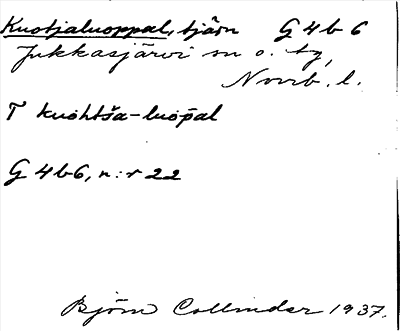 Kuotjaluoppal, tjärn G 4 b 6
Jukkasjärvi sn o. tg,
Norrb. l.
T kuohtša-luōpal
G 4 b 6, n:r 22
Björn Collinder 1937.